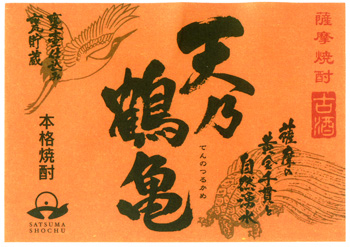 薩摩焼酎
古酒
天乃
鶴亀
てんのつるかめ
薩摩の
黄金千貫と
自然湧水
甕貯蔵
本格焼酎
SATSUMA
SHOCHU